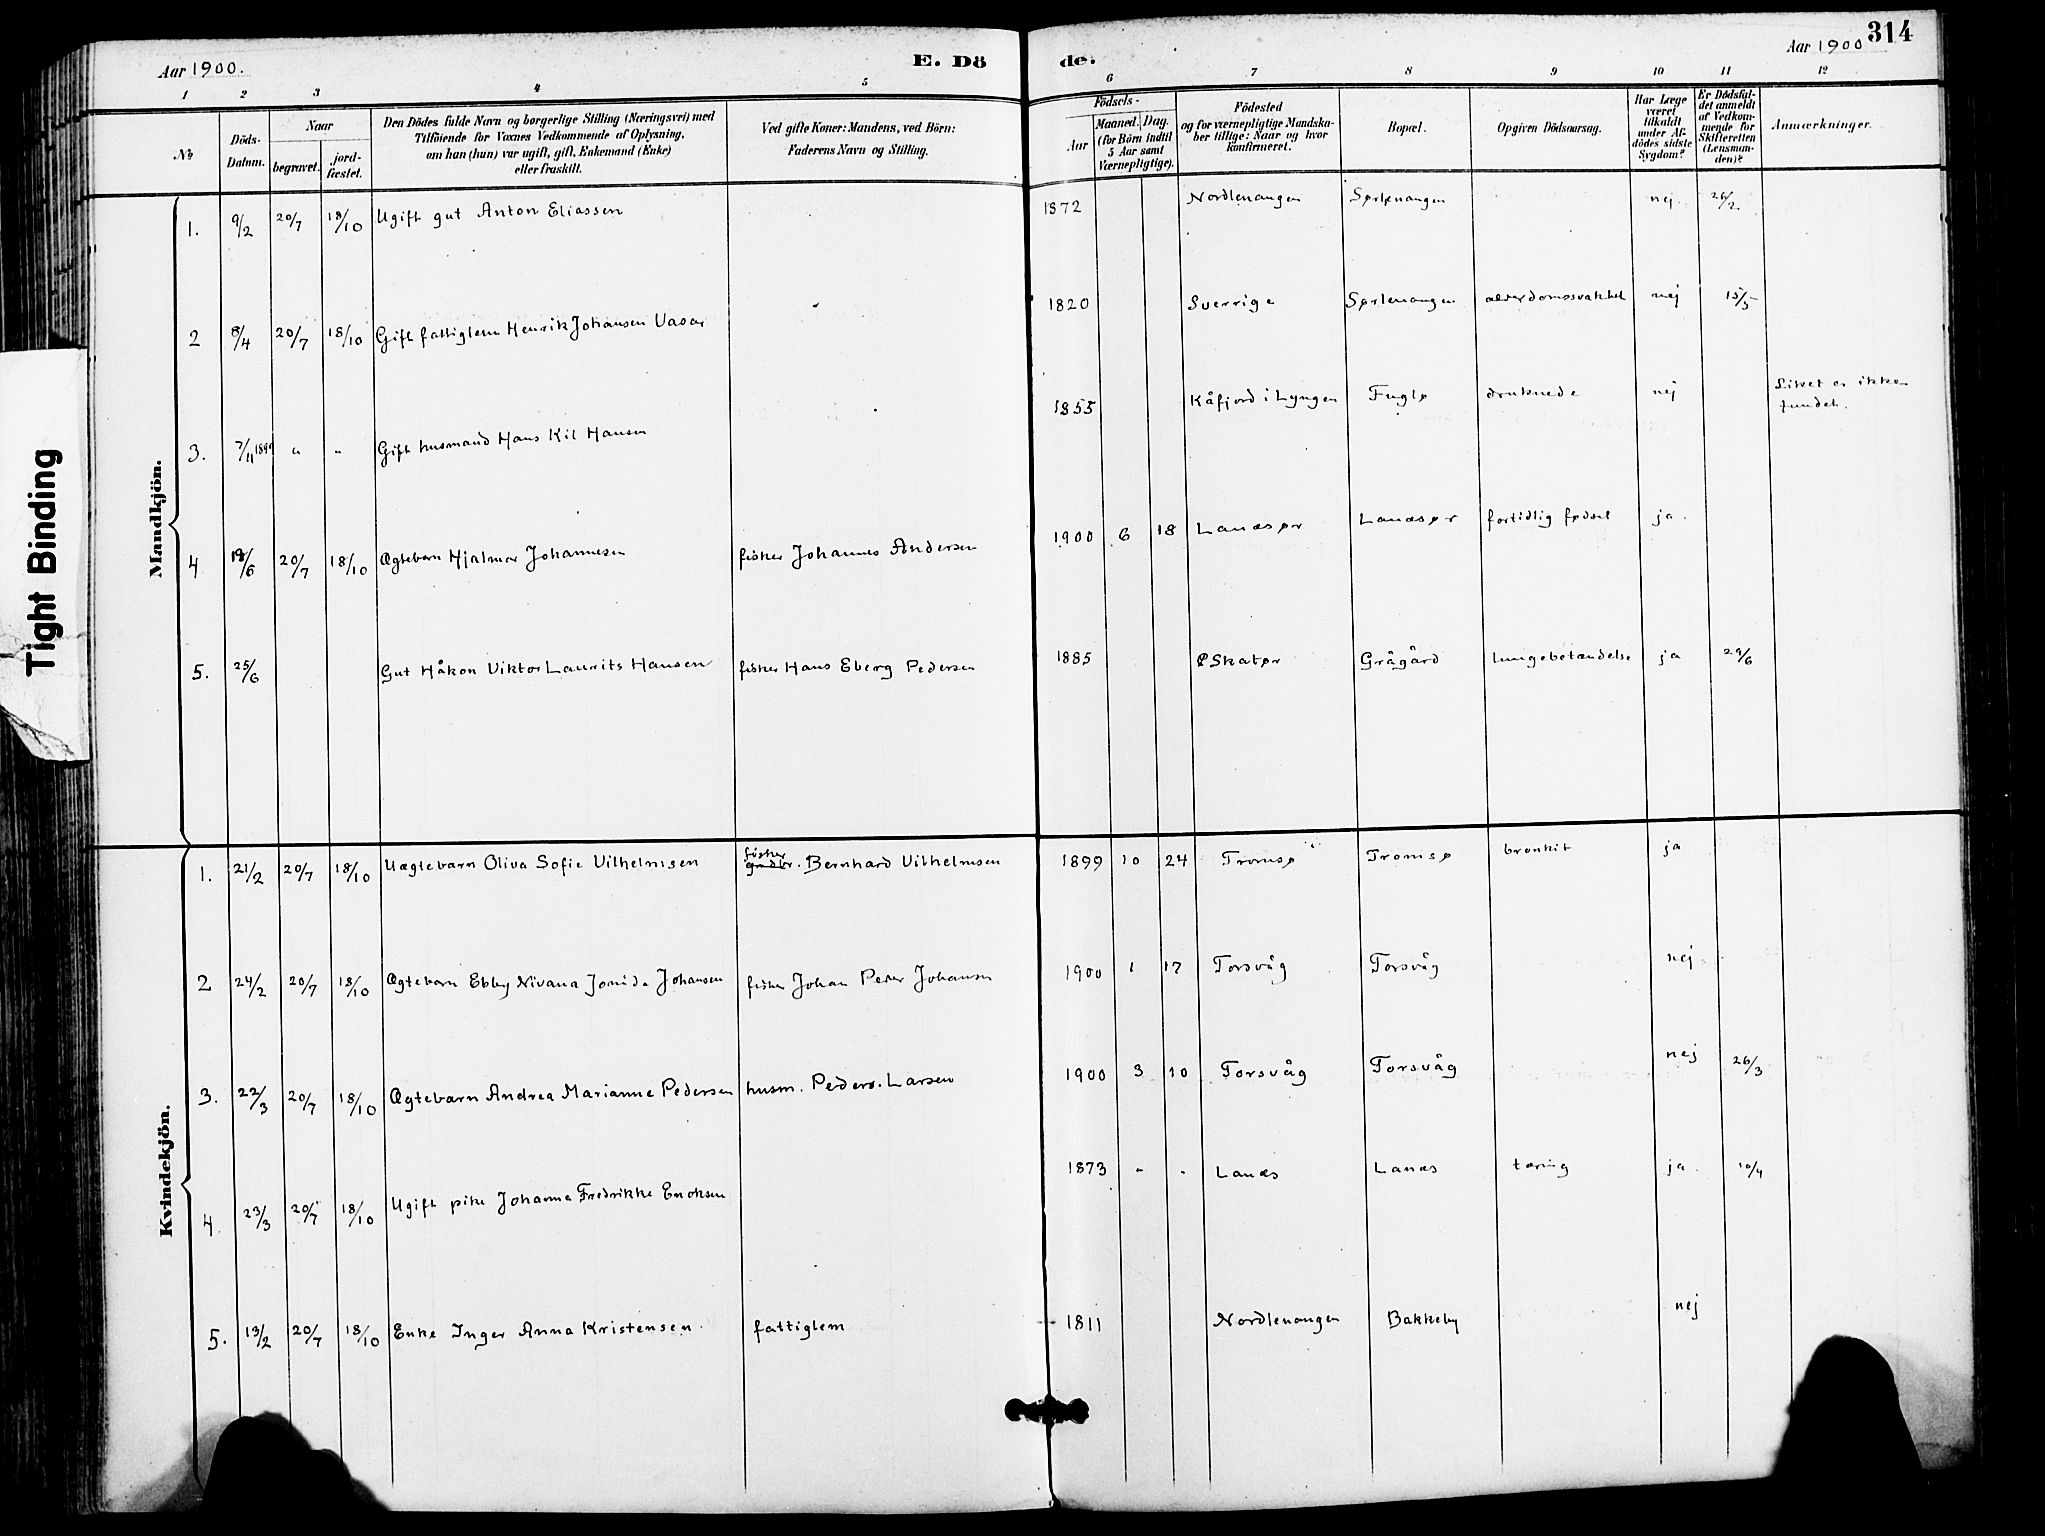 314
Aar 1900. E. Dö de. Aar 1900
1 2 3 4 5 6 7 8 9 10 11 12
No
Döds-Datum.
Naar
begravet.
jord-fæstet.
Den Dödes fulde Navn og borgerlige Stilling (Næringsvei) med
Tilföiende for Voxnes Vedkommende af Oplysning,
om han (hun) var ugift, gift, Enkemand (Enke)
eller fraskilt.
Ved gifte Koner: Mandens, ved Börn:
Faderens Navn og Stilling.
Födsels-
Aar
Maaned. Dag.
(for Börn indtil
5 Aar samt
Værnepligtige).
Födested
og for værnepligtige Mandska-
ber tillige: Naar og hvor
konfirmeret.
Bopæl.
Opgiven Dödsaarsag.
Har Læge
været
tilkaldt
under Af-
dödes sidste
Sygdom?
Er Dödsfal-
det anmeldt
af Vedkom-
mende for
Skifteretten
(Lensman-
den)?
Anmærkninger.
Tight Binding
Mandkjön.
1. 9/2 20/7 18/10 Ugift gut Anton Eliassen 1872 Nordlenangen Sørlenangen nej 26/2
2 8/4 20/7 18/10 Gift fattiglem Henrik Johansen Vasar 1820 Sverrige Sørlenangen alderdomssvakhet nej 15/5
3. 7/11 1899 " " Gift husmand Hans Kil Hansen 1855 Kåfjord i Lyngen Fuglø druknede nej Liket er ikke
fundet.
4 18/6 20/7 18/10 Ægtebarn Hjalmar Johannesen fisker Johannes Andersen 1900 6 18 Lanæsør Lanæsør fortidlig fødsel ja.
5. 25/6 Gut Håkon Viktor Laurits Hansen fisker Hans Eberg Pedersen 1885 Skatør Grågård lungebetændelse ja 29/6
Kvindekjön.
1. 21/2 20/7 18/10 Uægtebarn Oliva Sofie Vilhelmsen fisker gaardbr. Bernhard Vilhelmsen 1899 10 24 Tromsø Tromsø bronkit ja
2 24/2 20/7 18/10 Ægtebarn Ebby Nivana Jonide Johansen fisker Johan Peder Johansen 1900 1 17 Torsvåg Torsvåg nej
3. 22/3 20/7 18/10 Ægtebarn Andrea Marianne Pedersen husm. Peder Larsen 1900 3 10 Torsvåg Torsvåg nej 26/3
4 23/3 20/7 18/10 Ugift pike Johanna Fredrikke Enoksen 1873 " " Lanæs Lanæs tæring ja. 10/4
5. 13/2 20/7 18/10 Enke Inger Anna Kristensen fattiglem 1811 Nordlenangen Bakkeby nej